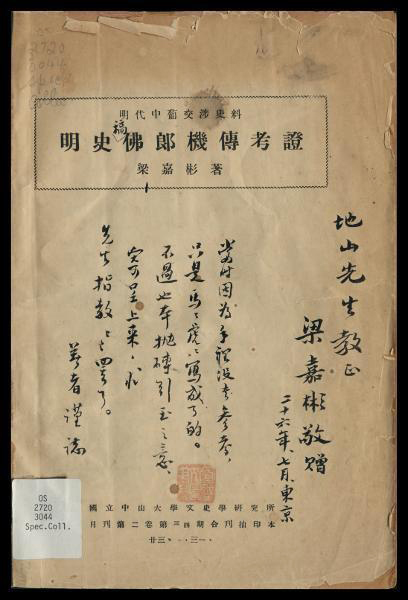 明代中葡交涉史料
明史稿佛郎機傳考證
梁嘉彬著
地山先生教正
梁嘉彬敬贈
二十六年、七月、東京
當時因為手裡没書參考、
只是馬々虎々寫成了的。
不過也本抛磚引玉之意、
先生指教
著者謹誌
國立中山大學文史學研究所
月刊第二卷第三四期合刊抽印本
廿三、一、三一、
OS
2720
3044
Spec.Coll.
2720
3044